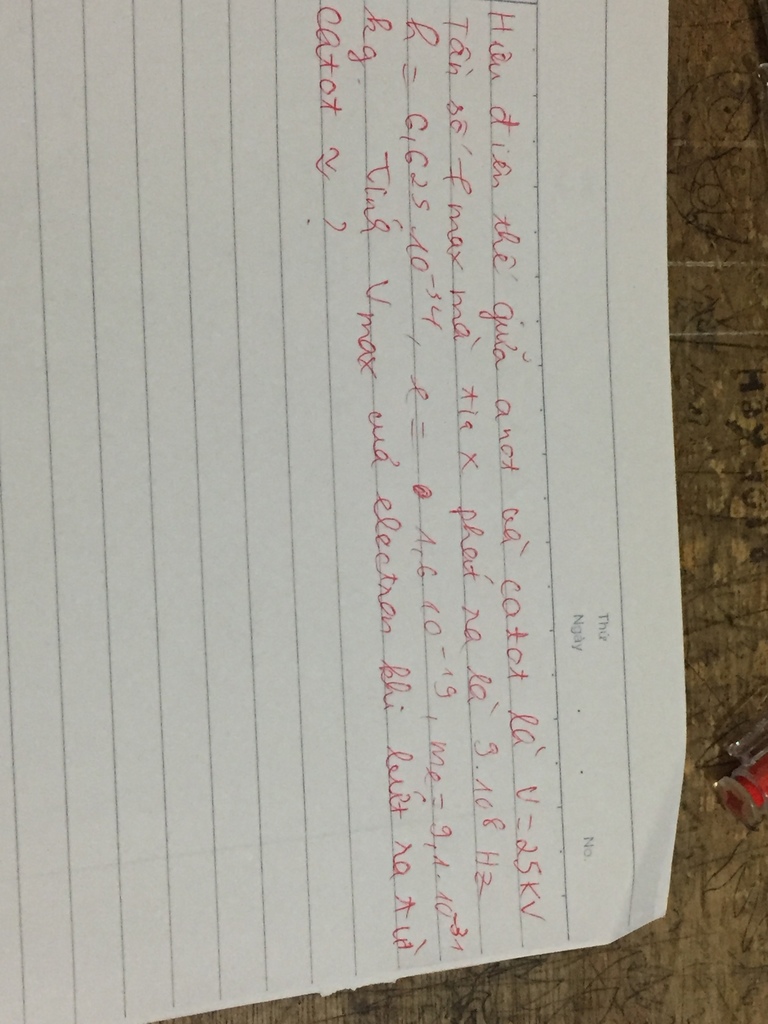 Thứ
Ngày . . No.
Hiệu điện thế giữa anot và catot là U = 25KV
Tần số f max mà tia x phát ra là 9.108 Hz
h = 6,625.10-34, e = 1,6.10-19, me = 9,1.10-31
kg. Tính Vmax của electron khi bứt ra từ
catot ?